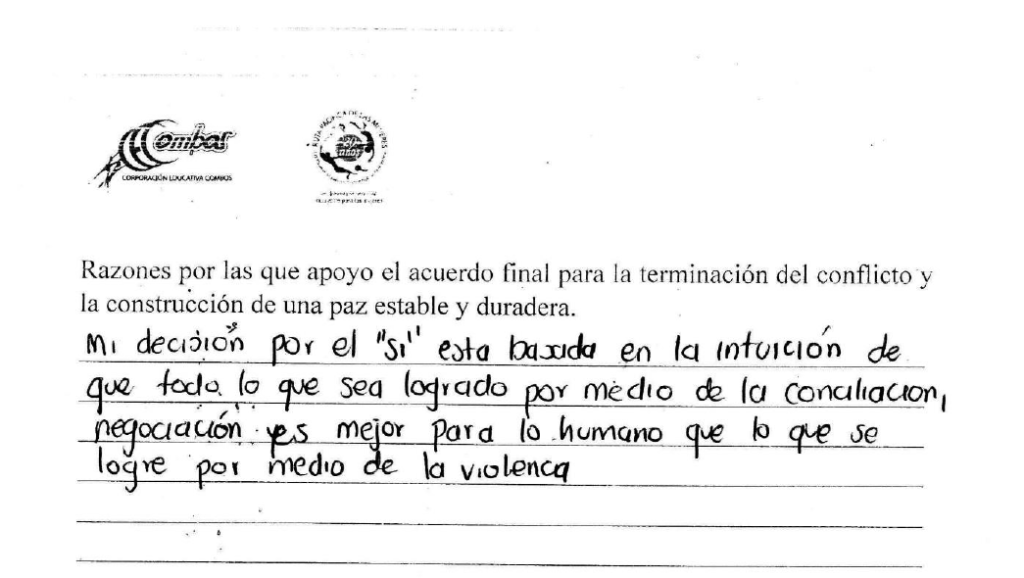 Combos
CORPORACIÓN EDUCATIVA COMBOS
RUTA PACÍFICA DE LAS MUJERES
Razones por las que apoyo el acuerdo final para la terminación del conflicto y
la construcción de una paz estable y duradera.
Mi decisión por el "Si" esta basada en la intuición de
que todo lo que sea logrado por medio de la conciliacion,
negociación es mejor para lo humano que lo que se
logre por medio de la violenca